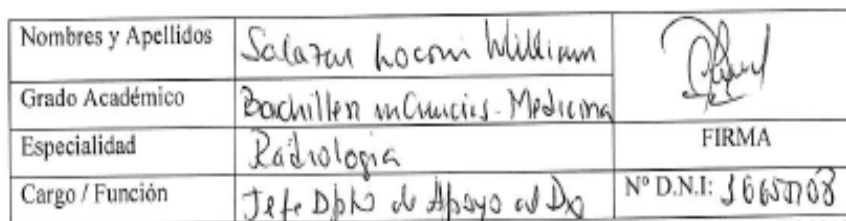 Nombres y Apellidos Salazar Loconi William
Grado Académico Bachiller en Ciencias - Medicina
Especialidad Radiologia FIRMA
Cargo / Función Jefe Dpto de Apoyo al Dx Nº D.N.I: